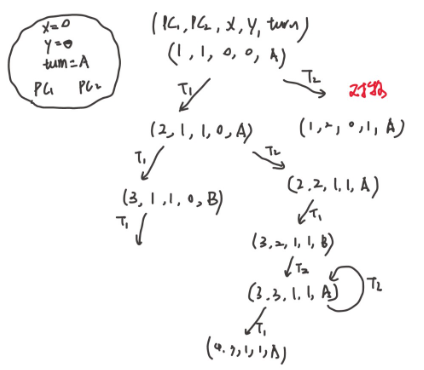 x=0
y=0
turn=A
PC1 PC2
(PC1, PC2, X, Y, turn)
(1, 1, 0, 0, A)
T1
T2
(2, 1, 1, 0, A)
(1, 2, 0, 1, A)
T1
T2
(3, 1, 1, 0, B)
(2, 2, 1, 1, A)
T1
T1
(3, 2, 1, 1, B)
T2
(3, 3, 1, 1, A)
T2
T1
(4, 3, 1, 1, A)